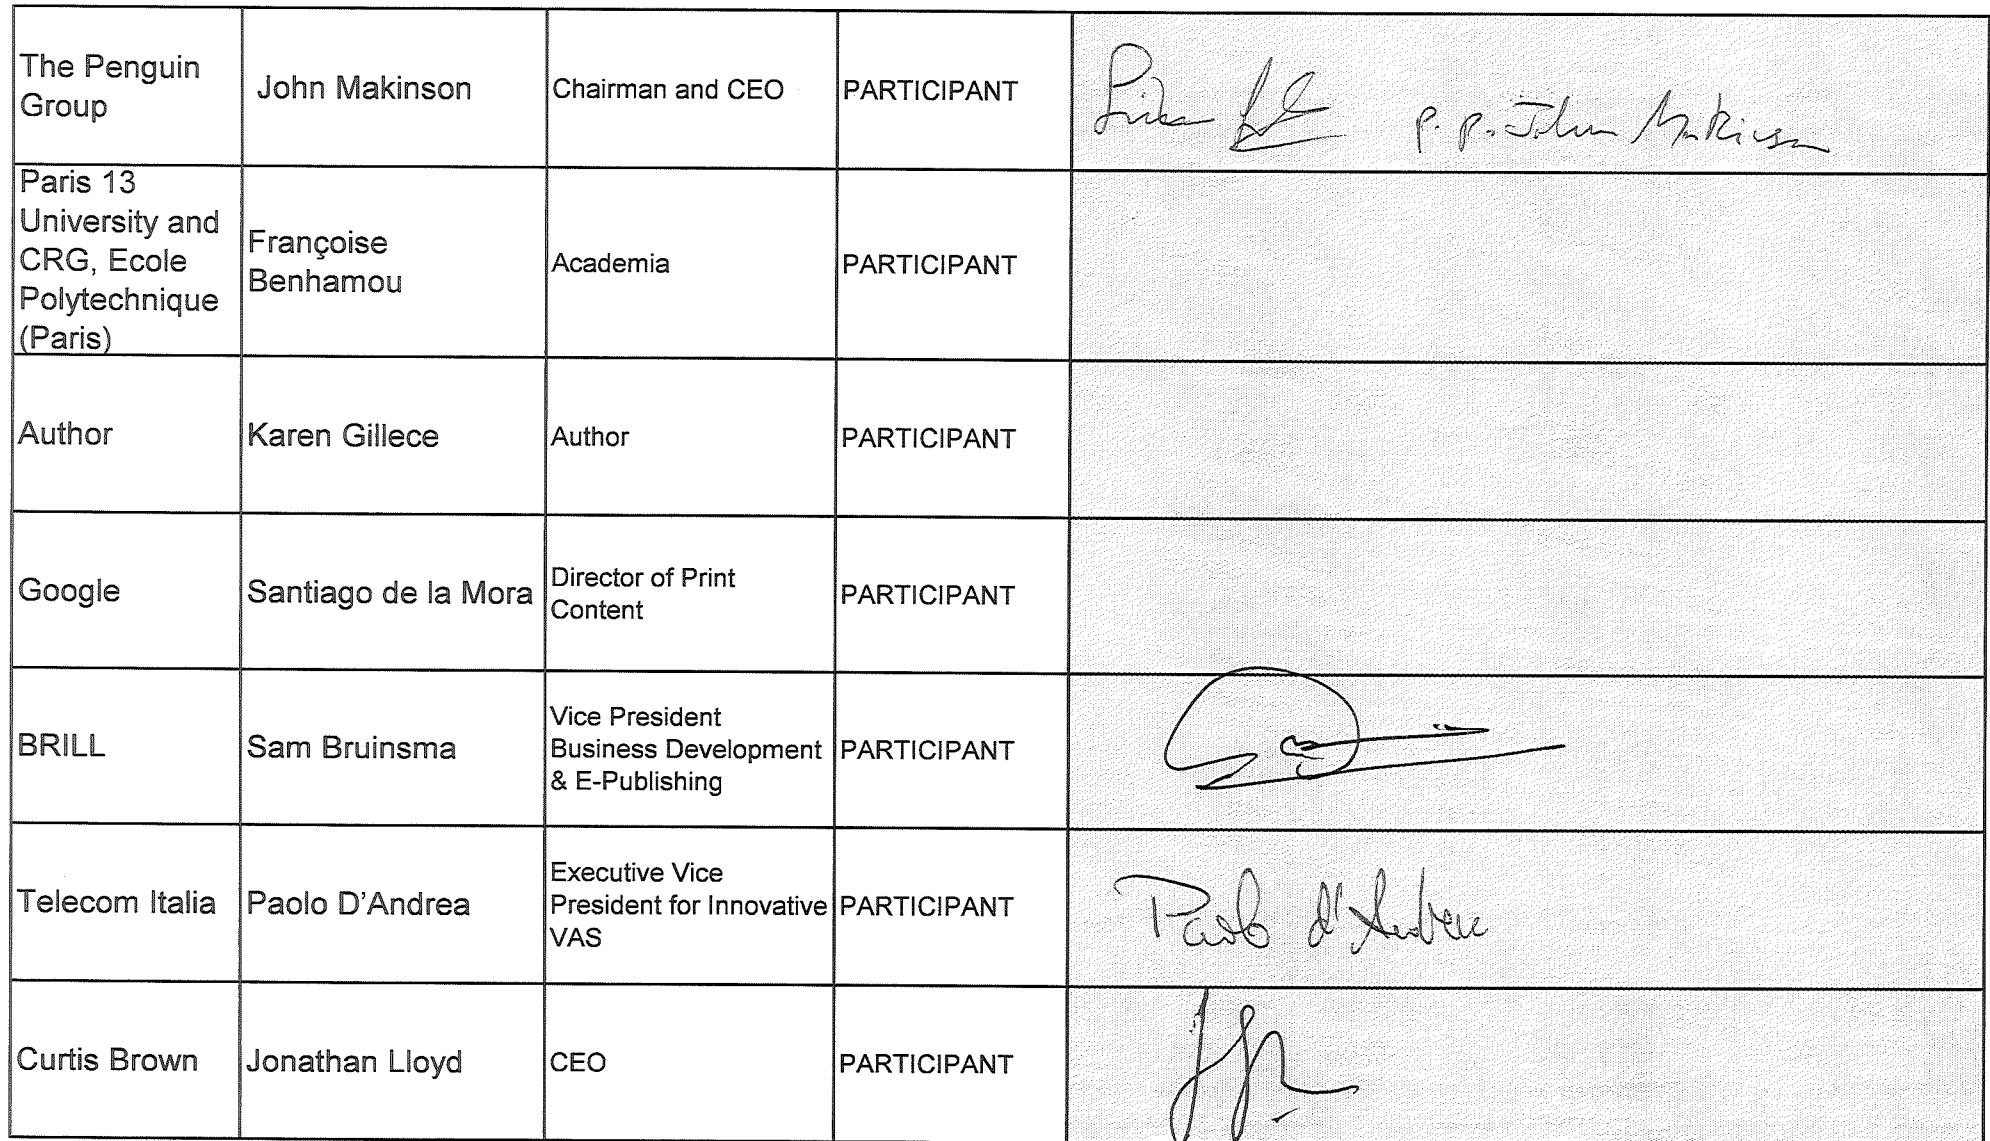 The Penguin
Group
John Makinson
Chairman and CEO
PARTICIPANT
p.p. John Makinson
Paris 13
University and
CRG, Ecole
Polytechnique
(Paris)
Françoise
Benhamou
Academia
PARTICIPANT
Author
Karen Gillece
Author
PARTICIPANT
Google
Santiago de la Mora
Director of Print
Content
PARTICIPANT
BRILL
Sam Bruinsma
Vice President
Business Development
& E-Publishing
PARTICIPANT
Telecom Italia
Paolo D'Andrea
Executive Vice
President for Innovative
VAS
PARTICIPANT
Paolo d'Andrea
Curtis Brown
Jonathan Lloyd
CEO
PARTICIPANT